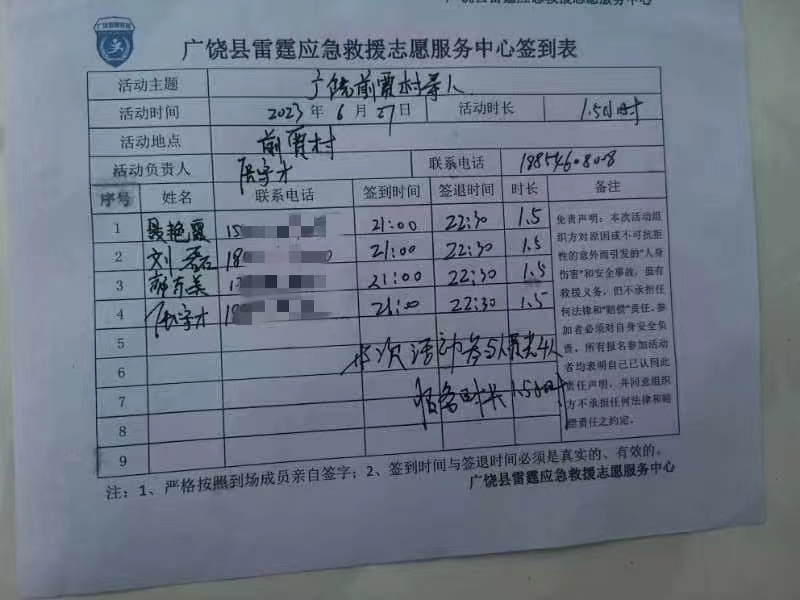 广饶县雷霆应急救援志愿服务中心
广饶县雷霆应急救援志愿服务中心签到表
活动主题 广饶前贾村寻人
活动时间 2023年6月27日 活动时长 1.5小时
活动地点 前贾村
活动负责人 联系电话
序号 姓名 联系电话 签到时间 签退时间 时长 备注
1 聂艳霞 21:00 22:30 1.5
2 刘磊 21:00 22:30 1.5
3 21:00 22:30 1.5
4 21:00 22:30 1.5
5
6 本次活动参与人员共4人
7 服务时长1.5小时
8
9
免责声明：本次活动组
织方对原因或不可抗拒
性的意外而引发的“人身
伤害”和安全事故，虽有
救援义务，但不承担任
何法律和“赔偿”责任。参
加者必须对自身安全负
责，所有报名参加活动
者均表明自己已认同此
责任声明，并同意组织
方不承担任何法律和赔
偿责任之约定。
注：1、严格按照到场成员亲自签字；2、签到时间与签退时间必须是真实的、有效的。
广饶县雷霆应急救援志愿服务中心